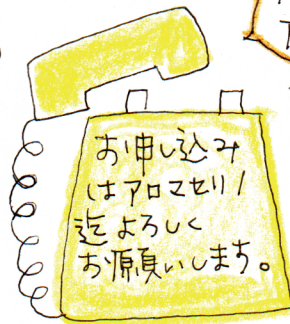 お申し込み
はアロマセリ
迄よろしく
お願いします。